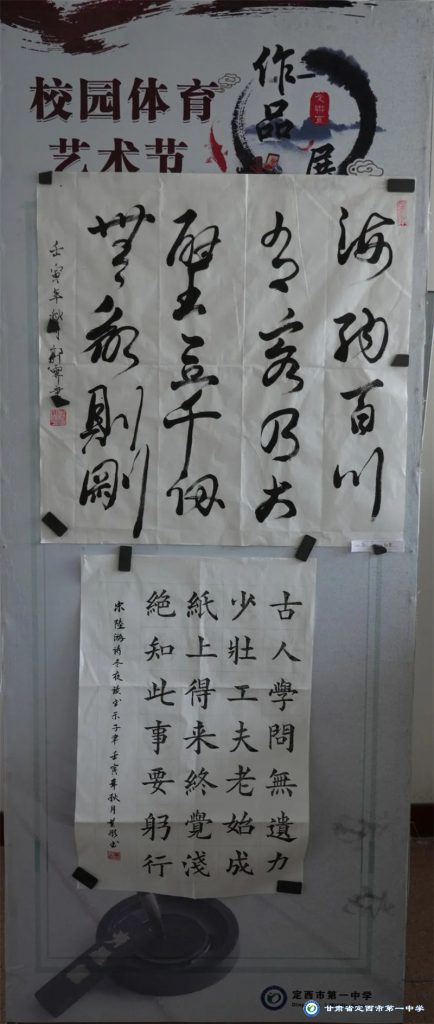 校园体育
艺术节
作品展
海纳百川
有容乃大
壁立千仞
無欲則剛
壬寅年秋月
古人學問無遺力
少壯工夫老始成
紙上得来終覺淺
絕知此事要躬行
宋陸游詩冬夜讀書示子聿 壬寅年秋月
定西市第一中学
甘肃省定西市第一中学